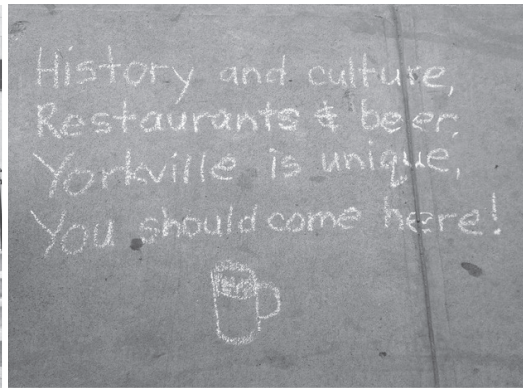 History and culture,
Restaurants & beer.
Yorkville is unique,
You should come here!